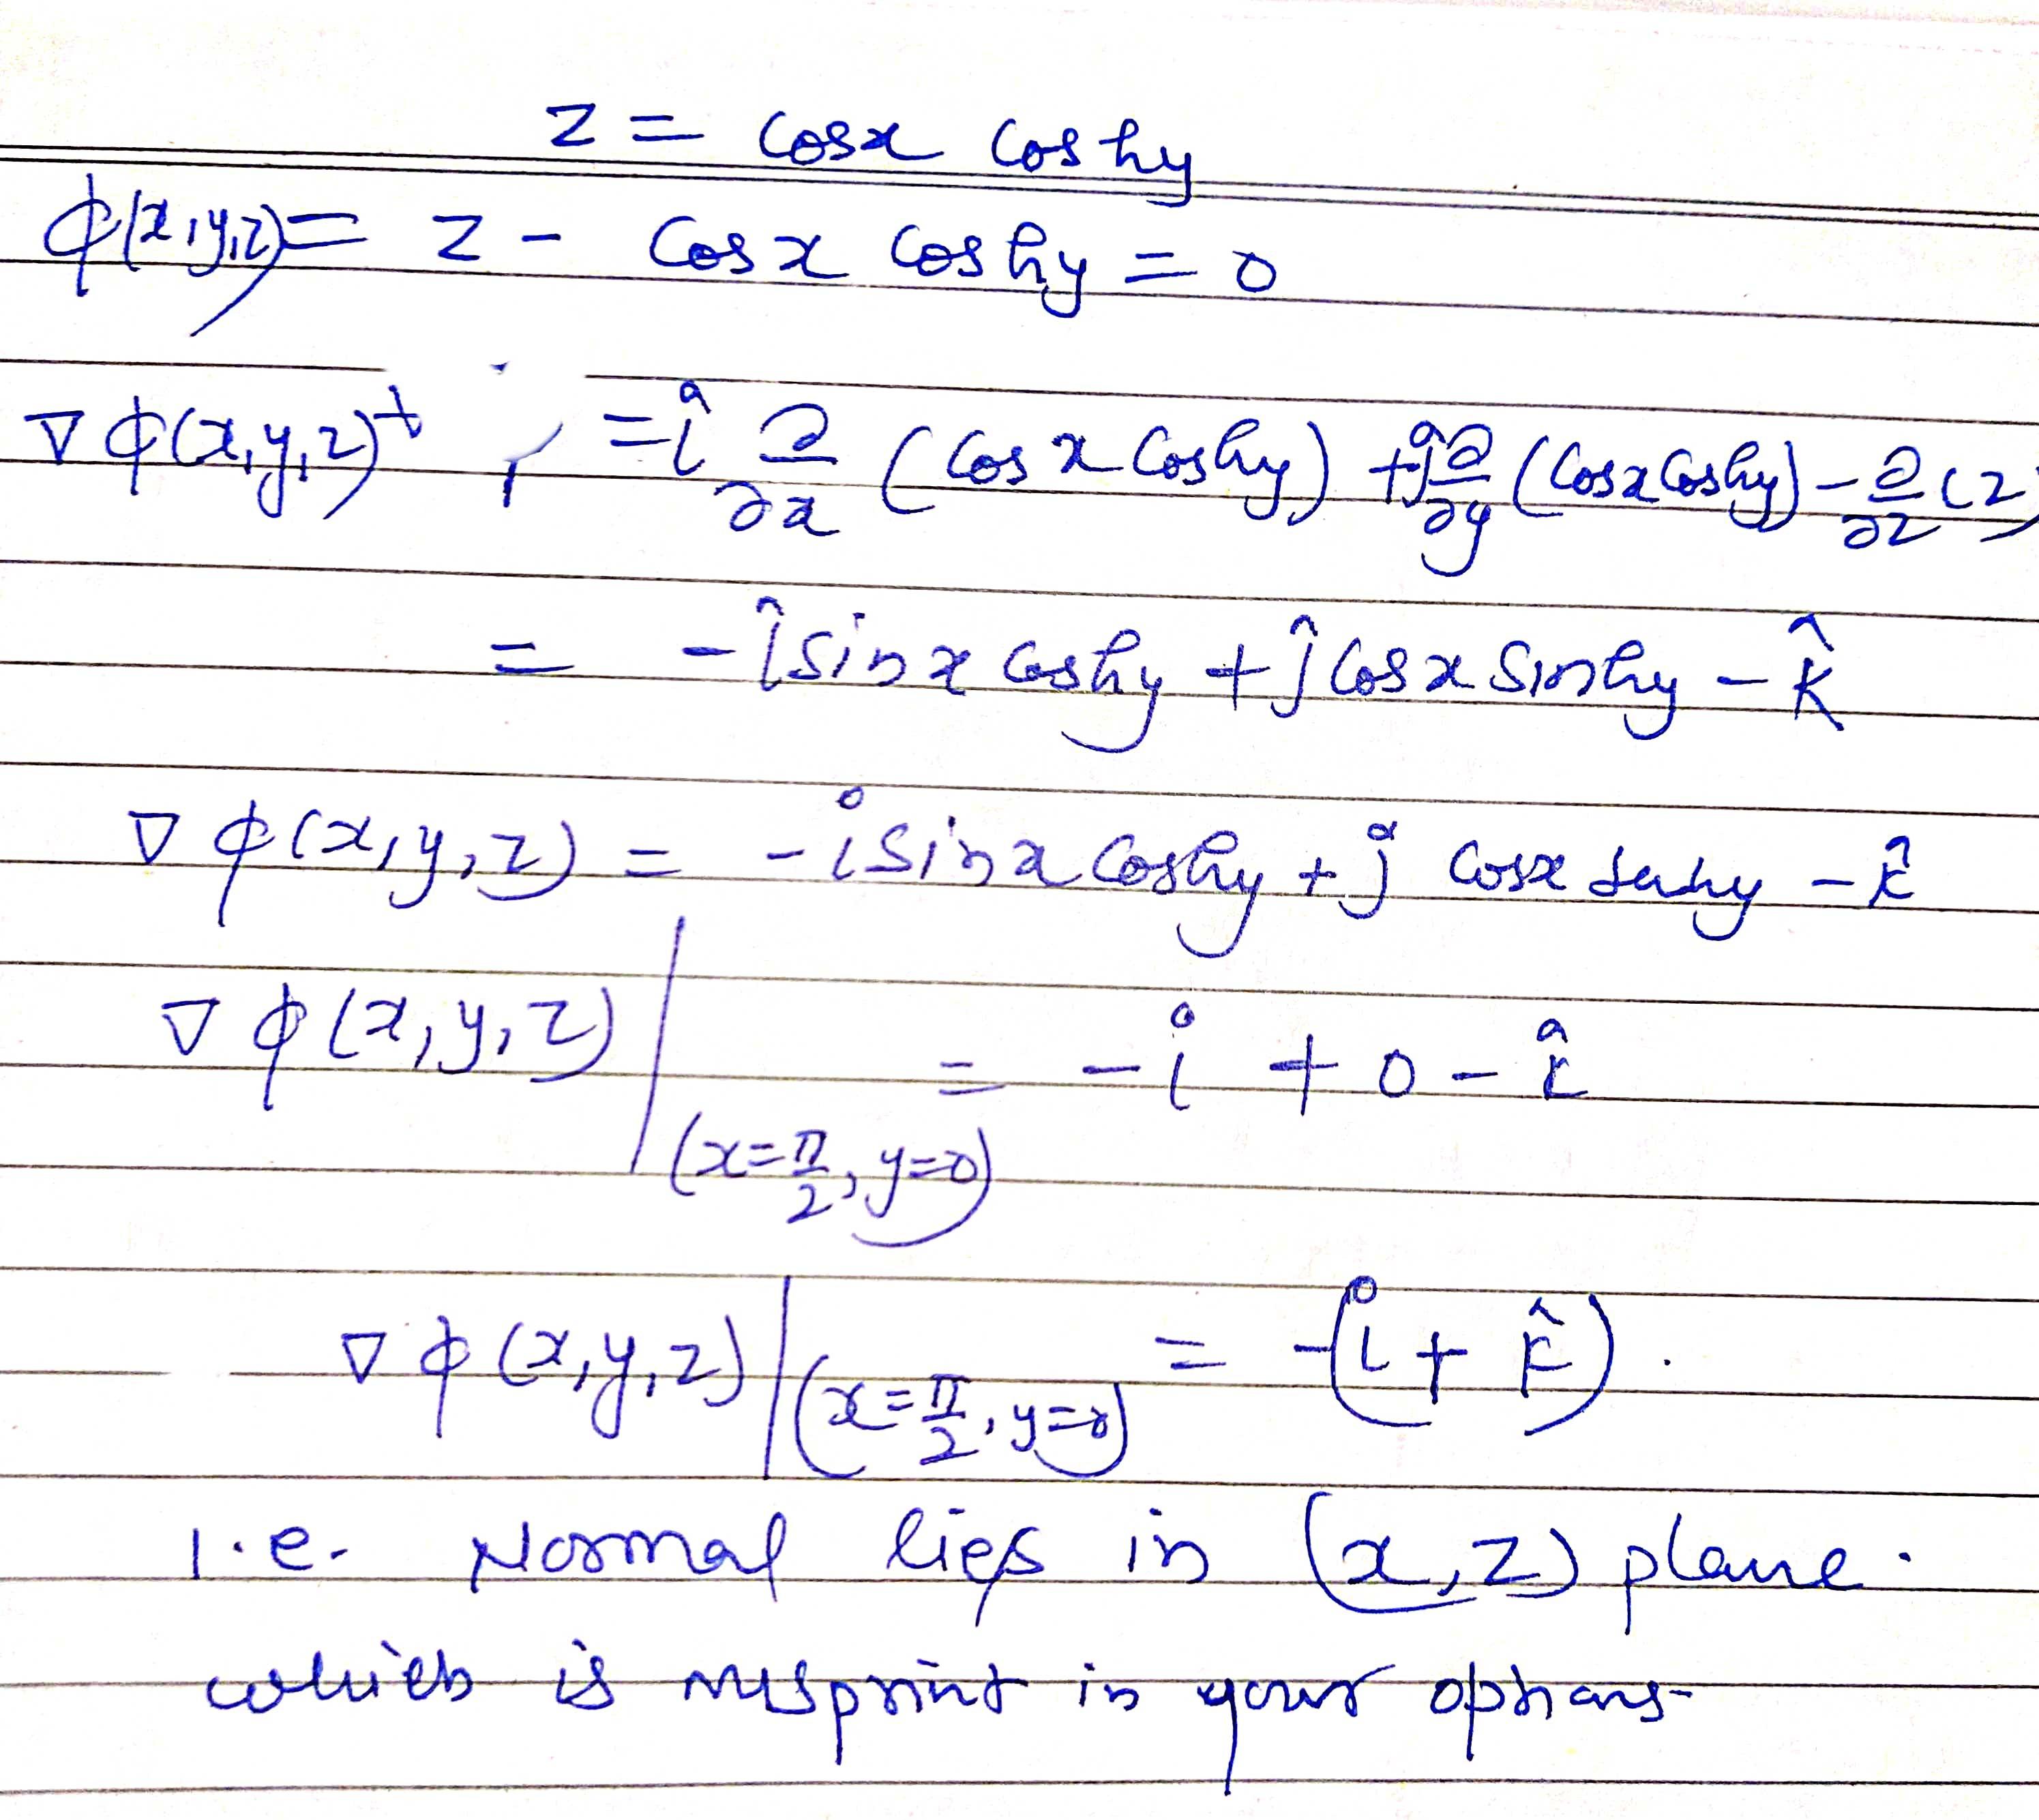 z = cosx coshy
φ(x,y,z) = z - cos x coshy = 0
∇φ(x,y,z) = î ∂/∂x (cos x coshy) + ĵ ∂/∂y (cosx coshy) - ∂/∂z (z)
= -î sin x coshy + ĵ cos x sinhy - k̂
∇φ(x,y,z) = -i sin x coshy + j cosx sinhy - k̂
∇φ(x,y,z)|(x=π/2, y=0) = -i + 0 - k̂
∇φ(x,y,z)|(x=π/2, y=0) = -(i + k̂).
i.e. Normal lies in (x,z) plane.
which is misprint in your options